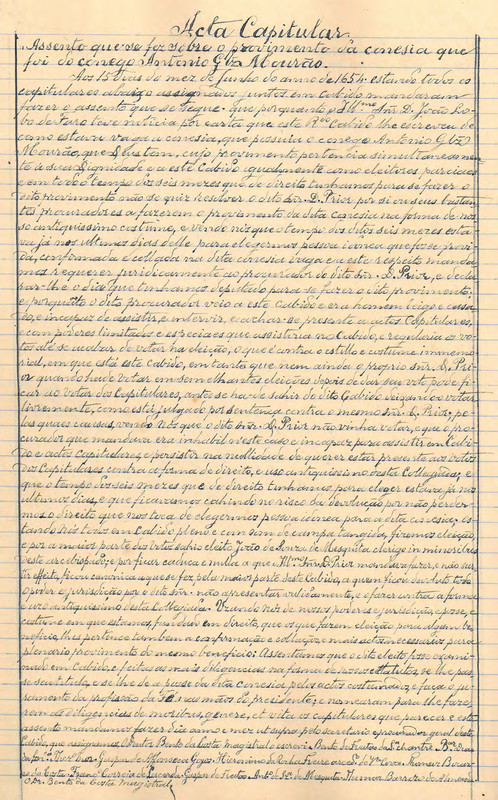 Acta Capitular
Assento que se fez sobre o provimento da conesia que
foi do conego Antonio Glz Mourão.
Aos 15 dias do mez de Junho do anno de 1654 estando todos os
capitulares abaixo assignados juntos em Cabido mandaram
fazer o assento que se segue. Que porquanto o Illmo Snr. D. João Lo-
bo de Faro teve noticia por carta que este Rdo Cabido lhe escreveu de
como estava vaga a conesia, que possuia o conego Antonio Glz
Mourão, que Ds tem, cujo provimento pertencia simultaneamen-
te á sua Dignidade e a este Cabido igualmente como eleitores parciaes
e em todo o tempo dos seis mezes que de direito tinhamos para se fazer o
dito provimento não se quiz resolver o dito snr. D. Prior por si ou seus bastan-
tes procuradores a fazerem o provimento da dita conesia na forma de nos-
so antiquissimo costume, e vendo nós que o tempo dos ditos seis mezes esta-
va já nos ultimos dias delle, para elegermos pessoa idonea que fosse provi-
da, confirmada e collada na dita conesia vaga e a este respeito manda-
mos requerer juridicamente ao procurador do dito snr. D. Prior, e decla-
rar-lhe o dia que tinhamos deputado para se fazer o dito provimento;
e porquanto o dito procurador veio a este Cabido e era homem leigo e casa-
do, e incapaz de assistir, e intervir, e achar-se presente a actos Capitulares,
e com poderes limitados e especiaes que assistiria no Cabido, e regularia os vo-
tos até se acabar de votar na eleição, o que é contra o estillo e costume immemo-
rial, em que está este Cabido, em tanto que nem ainda o proprio snr. D. Pri-
or quando ha de votar em semelhantes eleições depois de dar seu voto pode fi-
car ao votar dos Capitulares, antes se ha de sahir do dito Cabido deixando-os votar
livremente, como está julgado por sentença contra o mesmo snr. D. Prior, pe-
los quaes causas, vendo nós que o dito snr. D. Prior não vinha votar, e que o pro-
curador que mandava era inhabil neste caso e incapaz para assistir em Cabi-
do e actos Capitulares, e persistir na nullidade de querer estar presente aos votos
dos Capitulares contra a forma de direito, e uso antiquissimo desta Collegiada; e
que o tempo dos seis mezes que de direito tinhamos para eleger estava já nos
ultimos dias, e que ficavamos cahindo no risco da devolução por não perder-
mos o direito que nos toca de elegermos pessoa idonea para a dita conesia; es-
tando nós todos em Cabido pleno e com som de campa tangida, fizemos eleição,
e por a maior parte dos votos sahio eleito João de Souza de Mesquita, clerigo in minoribus
deste arcebispado; e por ficar caduca e nulla a que o Illmo Snr. D. Prior mandava fazer, e não sur-
tir effeito, ficou canonica a que se fez pela maior parte deste Cabido, a quem ficou devoluto todo
o poder e jurisdicção por o dito snr. não apresentar validamente, e o fazer contra a forma
e uso antiquissimo desta Collegiada. Uzando nós de nossos poderes e jurisdicção, e posse, e
costume em que estamos, fundado em direito, que os que fazem eleição para algum be-
neficio, lhes pertence tambem a confirmação e collação, e mais actos necessarios para
plenario provimento do mesmo beneficio: Assentamos que o dito eleito fosse exami-
nado em Cabido, e feitas as mais diligencias na forma de nossos estatutos, se lhe pas-
se sua titula, e se lhe dê a posse da dita conesia pelos actos costumados, e faça o ju-
ramento da profissão da Fé nas mãos do presidente; e nomearam para lhe faze-
rem as diligencias de moribus, genere, et vita os capitulares que parecer e este
assento mandamos fazer dia anno e mez ut supra pelo secretario e procurador geral deste
Cabido, que assignamos. O Doutor Bento da Costa magistral o escrevi. Bento de Freitas da Sª Chantre.
Gaspar de Affonseca Goyos. Hieronimo da Rocha Freire. Thomaz Borges
da Costa. Franco Correia de Lacerda. Gaspar de Freitas. Anto de Sa de Mesquita. Thomaz Barroso de Almeida.
O Dr. Bento da Costa Magistral.